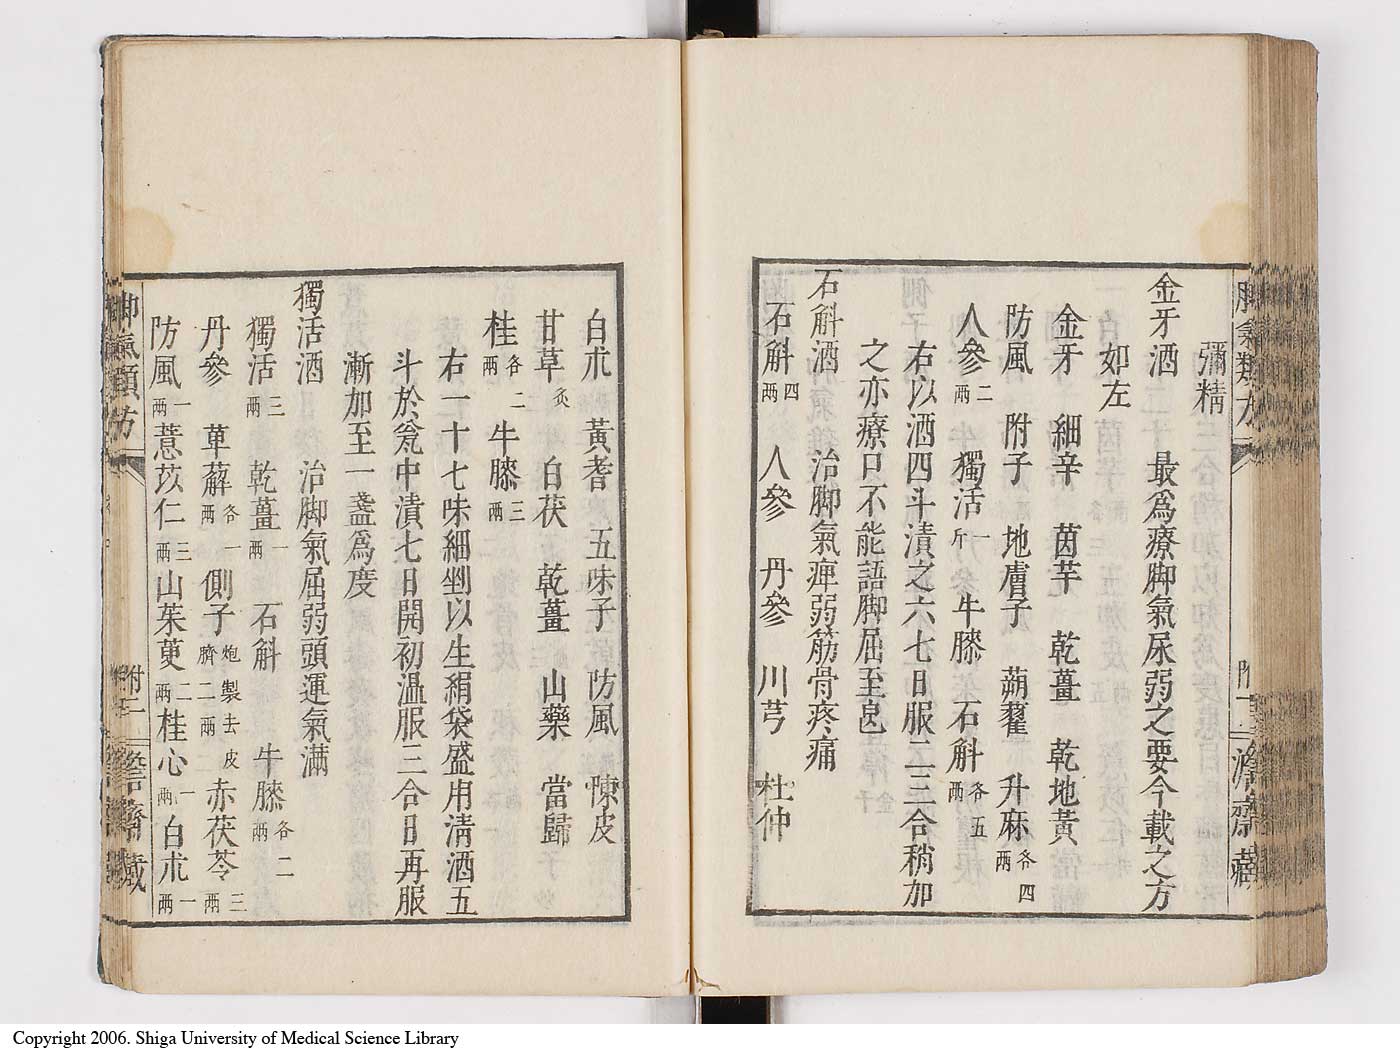 彌精
金牙酒　最爲療脚氣尿弱之要今載之方
如左
金牙　細辛　茵芋　乾薑　乾地黃
防風　附子　地膚子　蒴藋　升麻各四兩
人參二兩　獨活一斤　牛膝　石斛各五兩
右以酒四斗漬之六七日服二三合稍加
之亦療口不能語脚屈至良
石斛酒　治脚氣痺弱筋骨疼痛
石斛四兩　人參　丹參　川芎　杜仲
白朮　黃耆　五味子　防風　陳皮
甘草炙　白茯　乾薑　山藥　當歸
桂各二兩　牛膝三兩
右一十七味細剉以生絹袋盛用清酒五
斗於瓮中漬七日開初温服三合日再服
漸加至一盞爲度
獨活酒　治脚氣屈弱頭運氣滿
獨活三兩　乾薑一兩　石斛　牛膝各二兩
丹參　萆薢各一兩　側子炮製去皮臍二兩　赤茯苓三兩
防風一兩　薏苡仁三兩　山茱萸二兩　桂心一兩　白朮一兩
脚氣類方
Copyright 2006. Shiga University of Medical Science Library